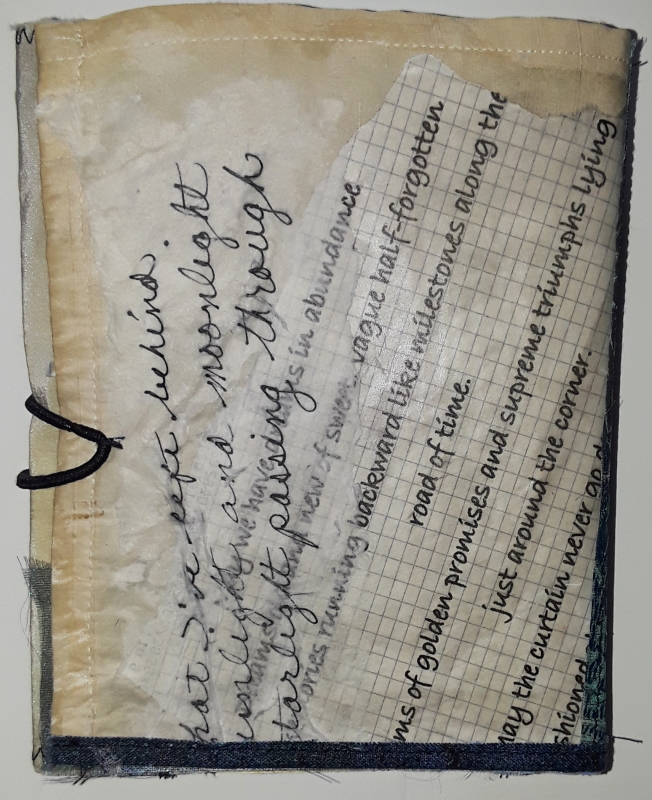 hat I've left behind.
unlight and moonlight
tarlight passing through
we have is in abundance
new of swee vague half-forgotten
ories running backward like milestones along the
road of time.
ms of golden promises and supreme triumphs lying
just around the corner.
may the curtain never go d
shioned